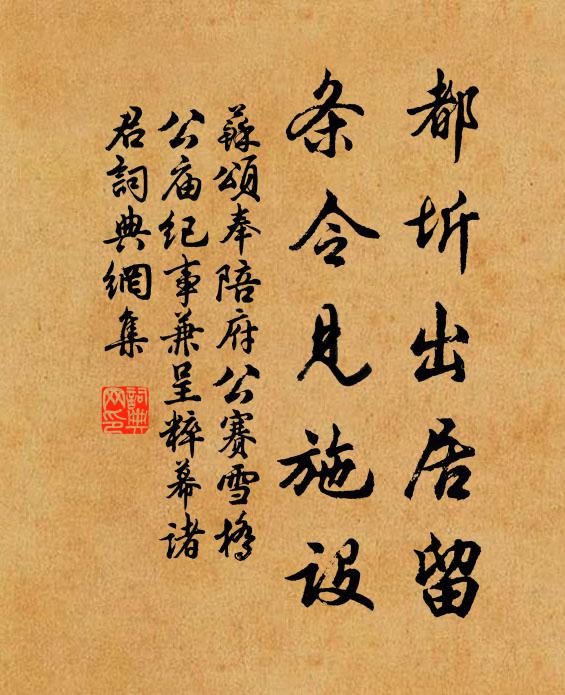 都圻出居留
条令見施設
蘇頌奉陪府公賽雪橋
公庙纪事兼呈粹幕诸
君詞典網集
詞典網印